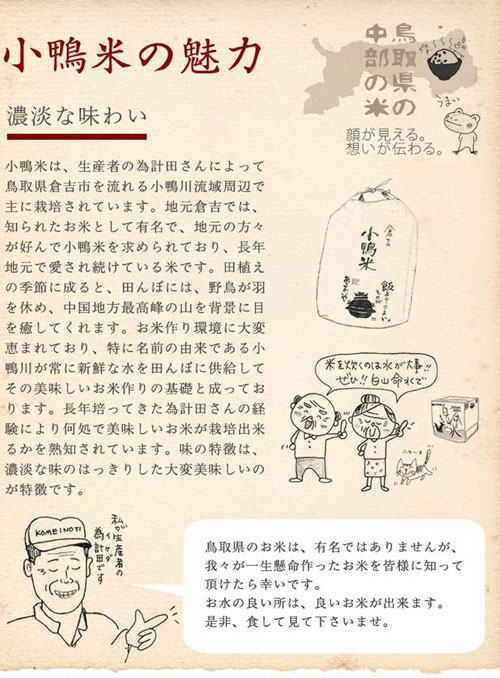 小鴨米の魅力
鳥取県の
中部の米
うまい
顔が見える。
想いが伝わる。
濃淡な味わい
小鴨米は、生産者の為計田さんによって
鳥取県倉吉市を流れる小鴨川流域周辺で
主に栽培されています。地元倉吉では、
知られたお米として有名で、地元の方々
が好んで小鴨米を求められており、長年
地元で愛され続けている米です。田植え
の季節に成ると、田んぼには、野鳥が羽
を休め、中国地方最高峰の山を背景に目
を癒してくれます。お米作り環境に大変
恵まれており、特に名前の由来である小
鴨川が常に新鮮な水を田んぼに供給して
その美味しいお米作りの基礎と成ってお
ります。長年培ってきた為計田さんの経
験により何処で美味しいお米が栽培出来
るかを熟知されています。味の特徴は、
濃淡な味のはっきりした大変美味しいの
が特徴です。
小鴨米
米を炊くのは水が大事!!
ぜひ!!白山命水で
KOMEINOTI
私が生産者の
為計田です
鳥取県のお米は、有名ではありませんが、
我々が一生懸命作ったお米を皆様に知って
頂けたら幸いです。
お水の良い所は、良いお米が出来ます。
是非、食して見て下さいませ。